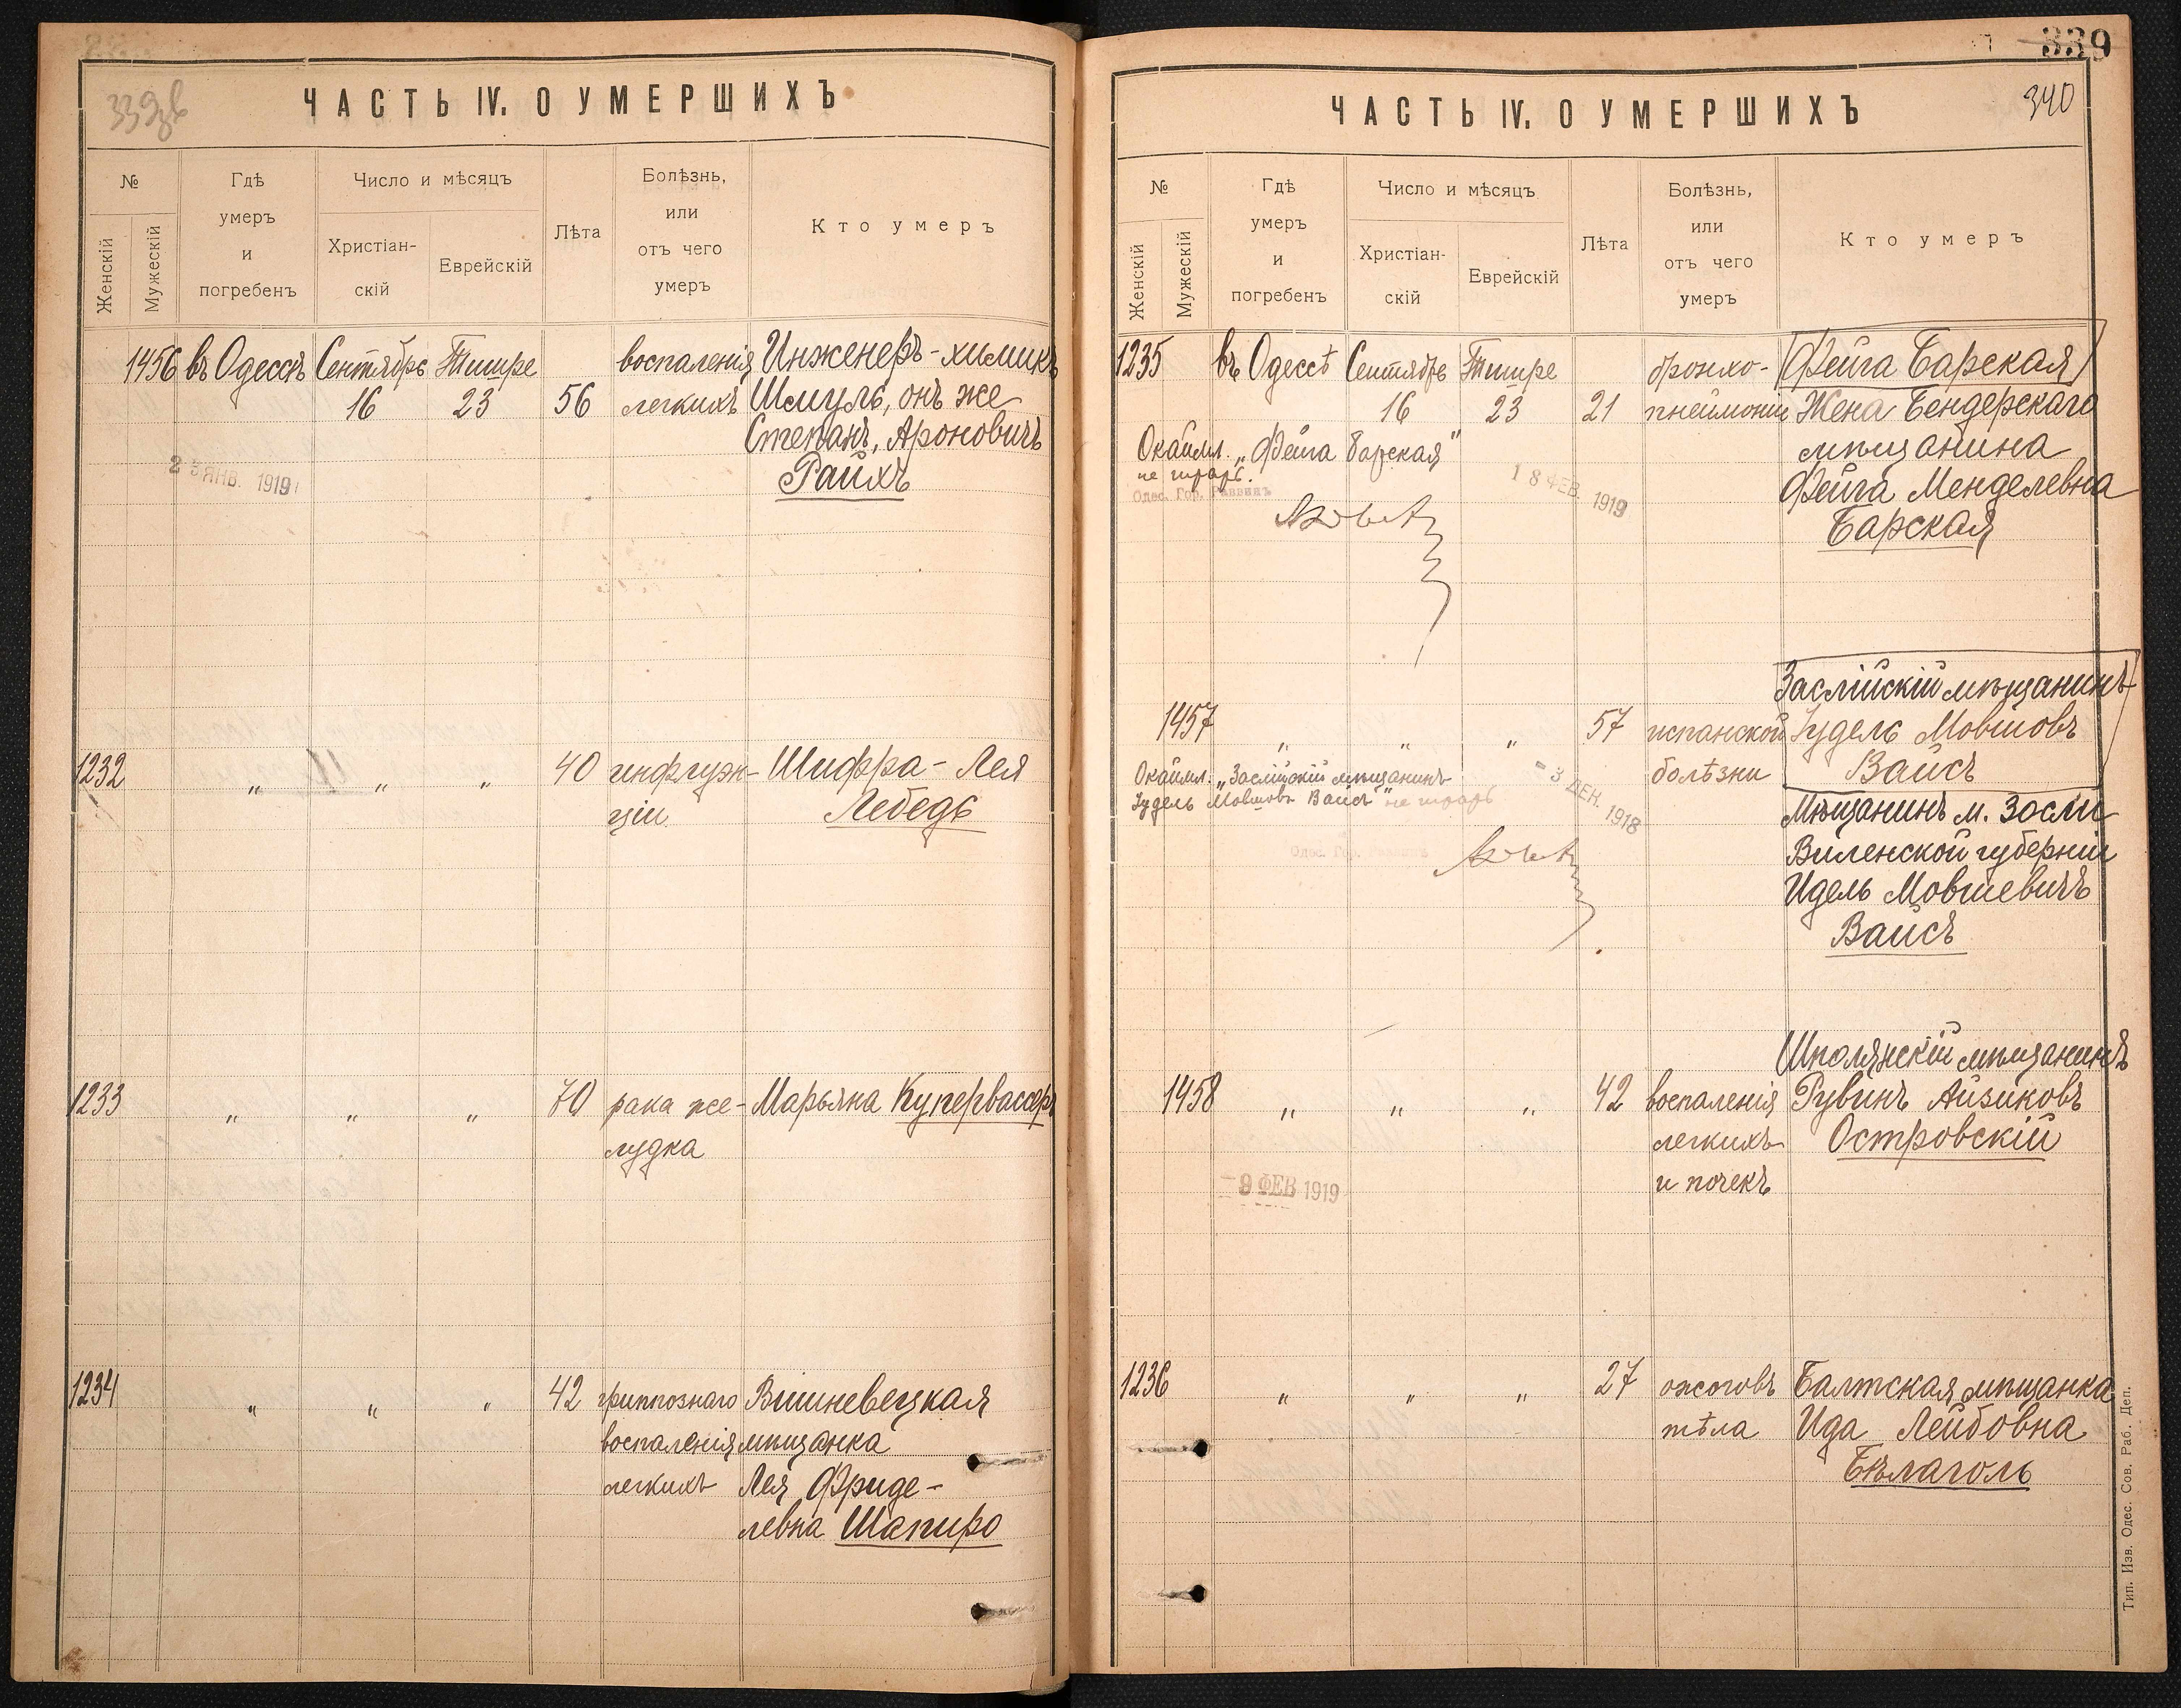 339 зв
ЧАСТЬ IV. О УМЕРШИХЪ
№
Женскій
Мужескій
Гдѣ
умеръ
и
погребенъ
Число и мѣсяцъ
Христіан-
скій
Еврейскій
Лѣта
Болѣзнь,
или
отъ чего
умеръ
Кто умеръ
1456 въ Одессѣ Сентябрь Тишре воспаленія Инженеръ-химикъ
16 23 56 легкихъ Шмуль, онъ же
Степанъ, Ароновичъ
Райхъ
23 ЯНВ. 1919
1232 " " " 40 инфлуэн- Шифра-Лея
ціи Лебедь
1233 " " " 70 рака же- Марьяна Купервассеръ
лудка
1234 " " " 42 гриппознаго Вишневецкая
воспаленія мѣщанка
легкихъ Лея Фриде-
левна Шапиро
339
340
ЧАСТЬ IV. О УМЕРШИХЪ
№
Женскій
Мужескій
Гдѣ
умеръ
и
погребенъ
Число и мѣсяцъ
Христіан-
скій
Еврейскій
Лѣта
Болѣзнь,
или
отъ чего
умеръ
Кто умеръ
1235 въ Одессѣ Сентябрь Тишре бронхо- Фейга Барская
16 23 21 пнеймоніи Жена Бендерскаго
мѣщанина
Фейга Менделевна
Барская
Окаймл. „Фейга Барская"
не читать.
Одес. Гор. Раввинъ
18 ФЕВ. 1919
Заслійскій мѣщанинъ
1457 " " " 57 испанской Іудель Мовшовъ
болѣзни Вайсъ
Окаймл. „Заслійскій мѣщанинъ
Іудель Мовшовъ Вайсъ" не читать
- 3 ДЕК. 1918
Одес. Гор. Раввинъ
Мѣщанинъ м. Засли
Виленской губерніи
Идель Мовшевичъ
Вайсъ
Шполянскій мѣщанинъ
1458 " " " 42 воспаленія Рувинъ Айзиковъ
легкихъ Островскій
и почекъ
- 9 ФЕВ 1919
1236 " " " 27 ожоговъ Балтская мѣщанка
тѣла Ида Лейбовна
Бѣлаголь
Тип. Изв. Одес. Сов. Раб. Деп.